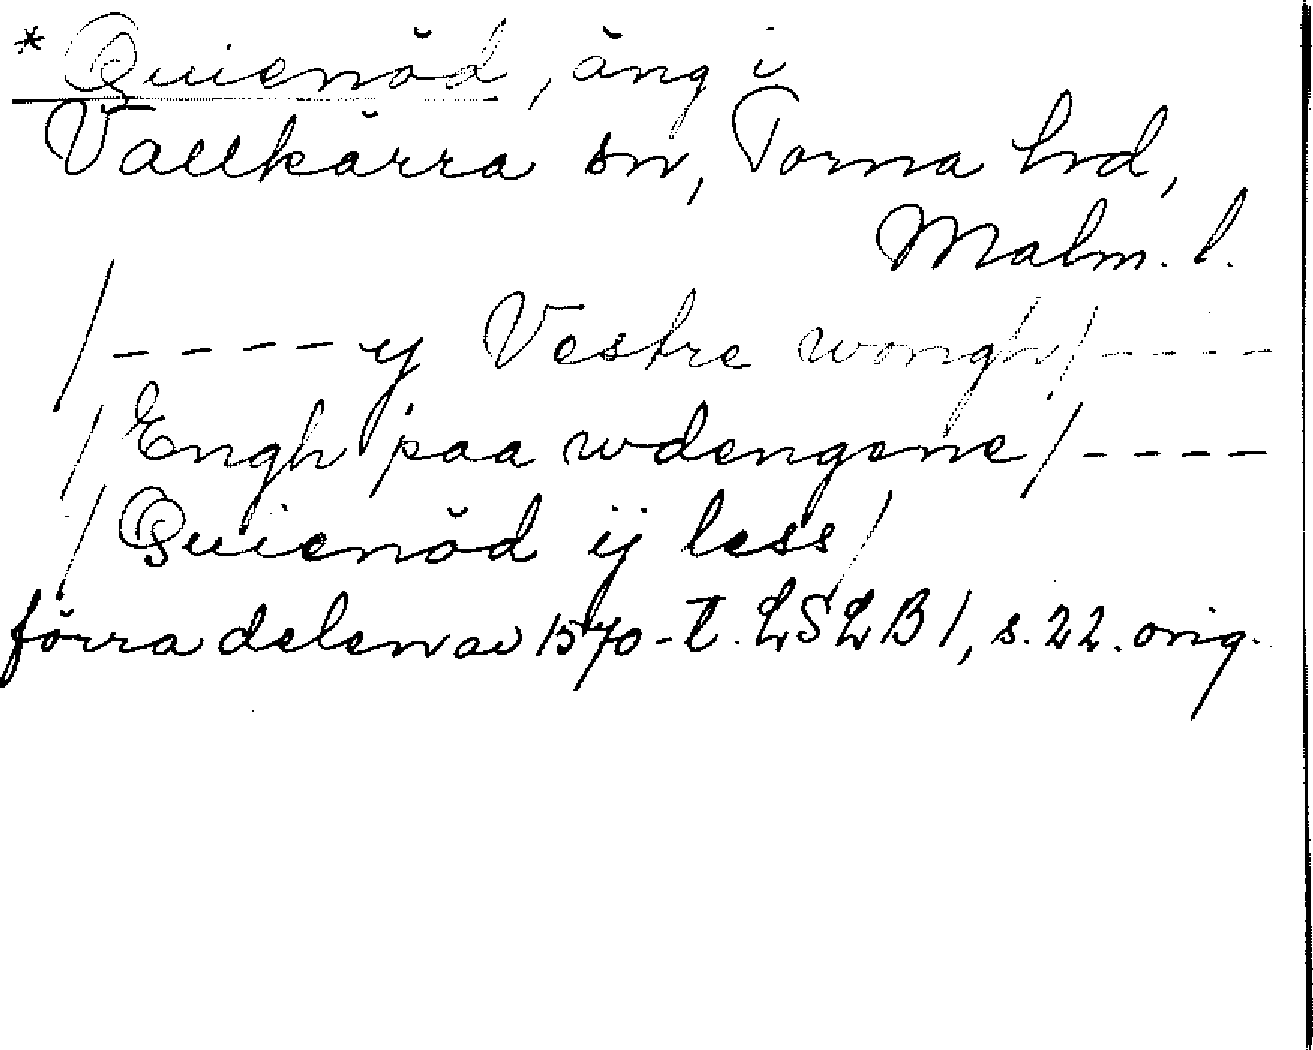 * Quienöd, äng i
Vallkärra sn, Torna hd,
Malm. l.
/---- y Vestre wongh/----
/Engh paa wdengene/----
/Quienöd ij less/
förra delen av 1570-t. LSLB 1, s. 22. orig.